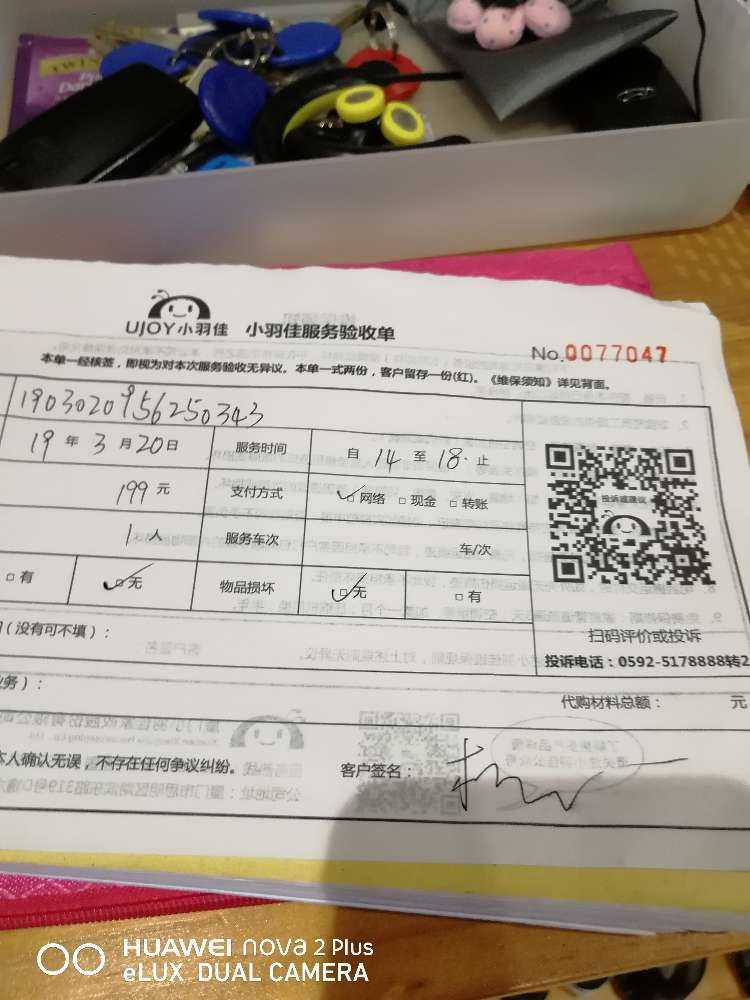 TWIN
UJOY小羽佳 小羽佳服务验收单
No.0077047
本单一经核签，即视为对本次服务验收无异议。本单一式两份，客户留存一份(红)。《维保须知》详见背面。
1903020956250343
19 年 3 月 20 日 服务时间 自 14 至 18 止
199 元 支付方式 网络 现金 转账
1 人 服务车次 车/次
有 无 物品损坏 无 有
投诉或建议
扫码评价或投诉
投诉电话：0592-5178888转2
(没有可不填)：
业务)：
代购材料总额： 元
本人确认无误，不存在任何争议纠纷。 客户签名：
HUAWEI nova 2 Plus
eLUX DUAL CAMERA